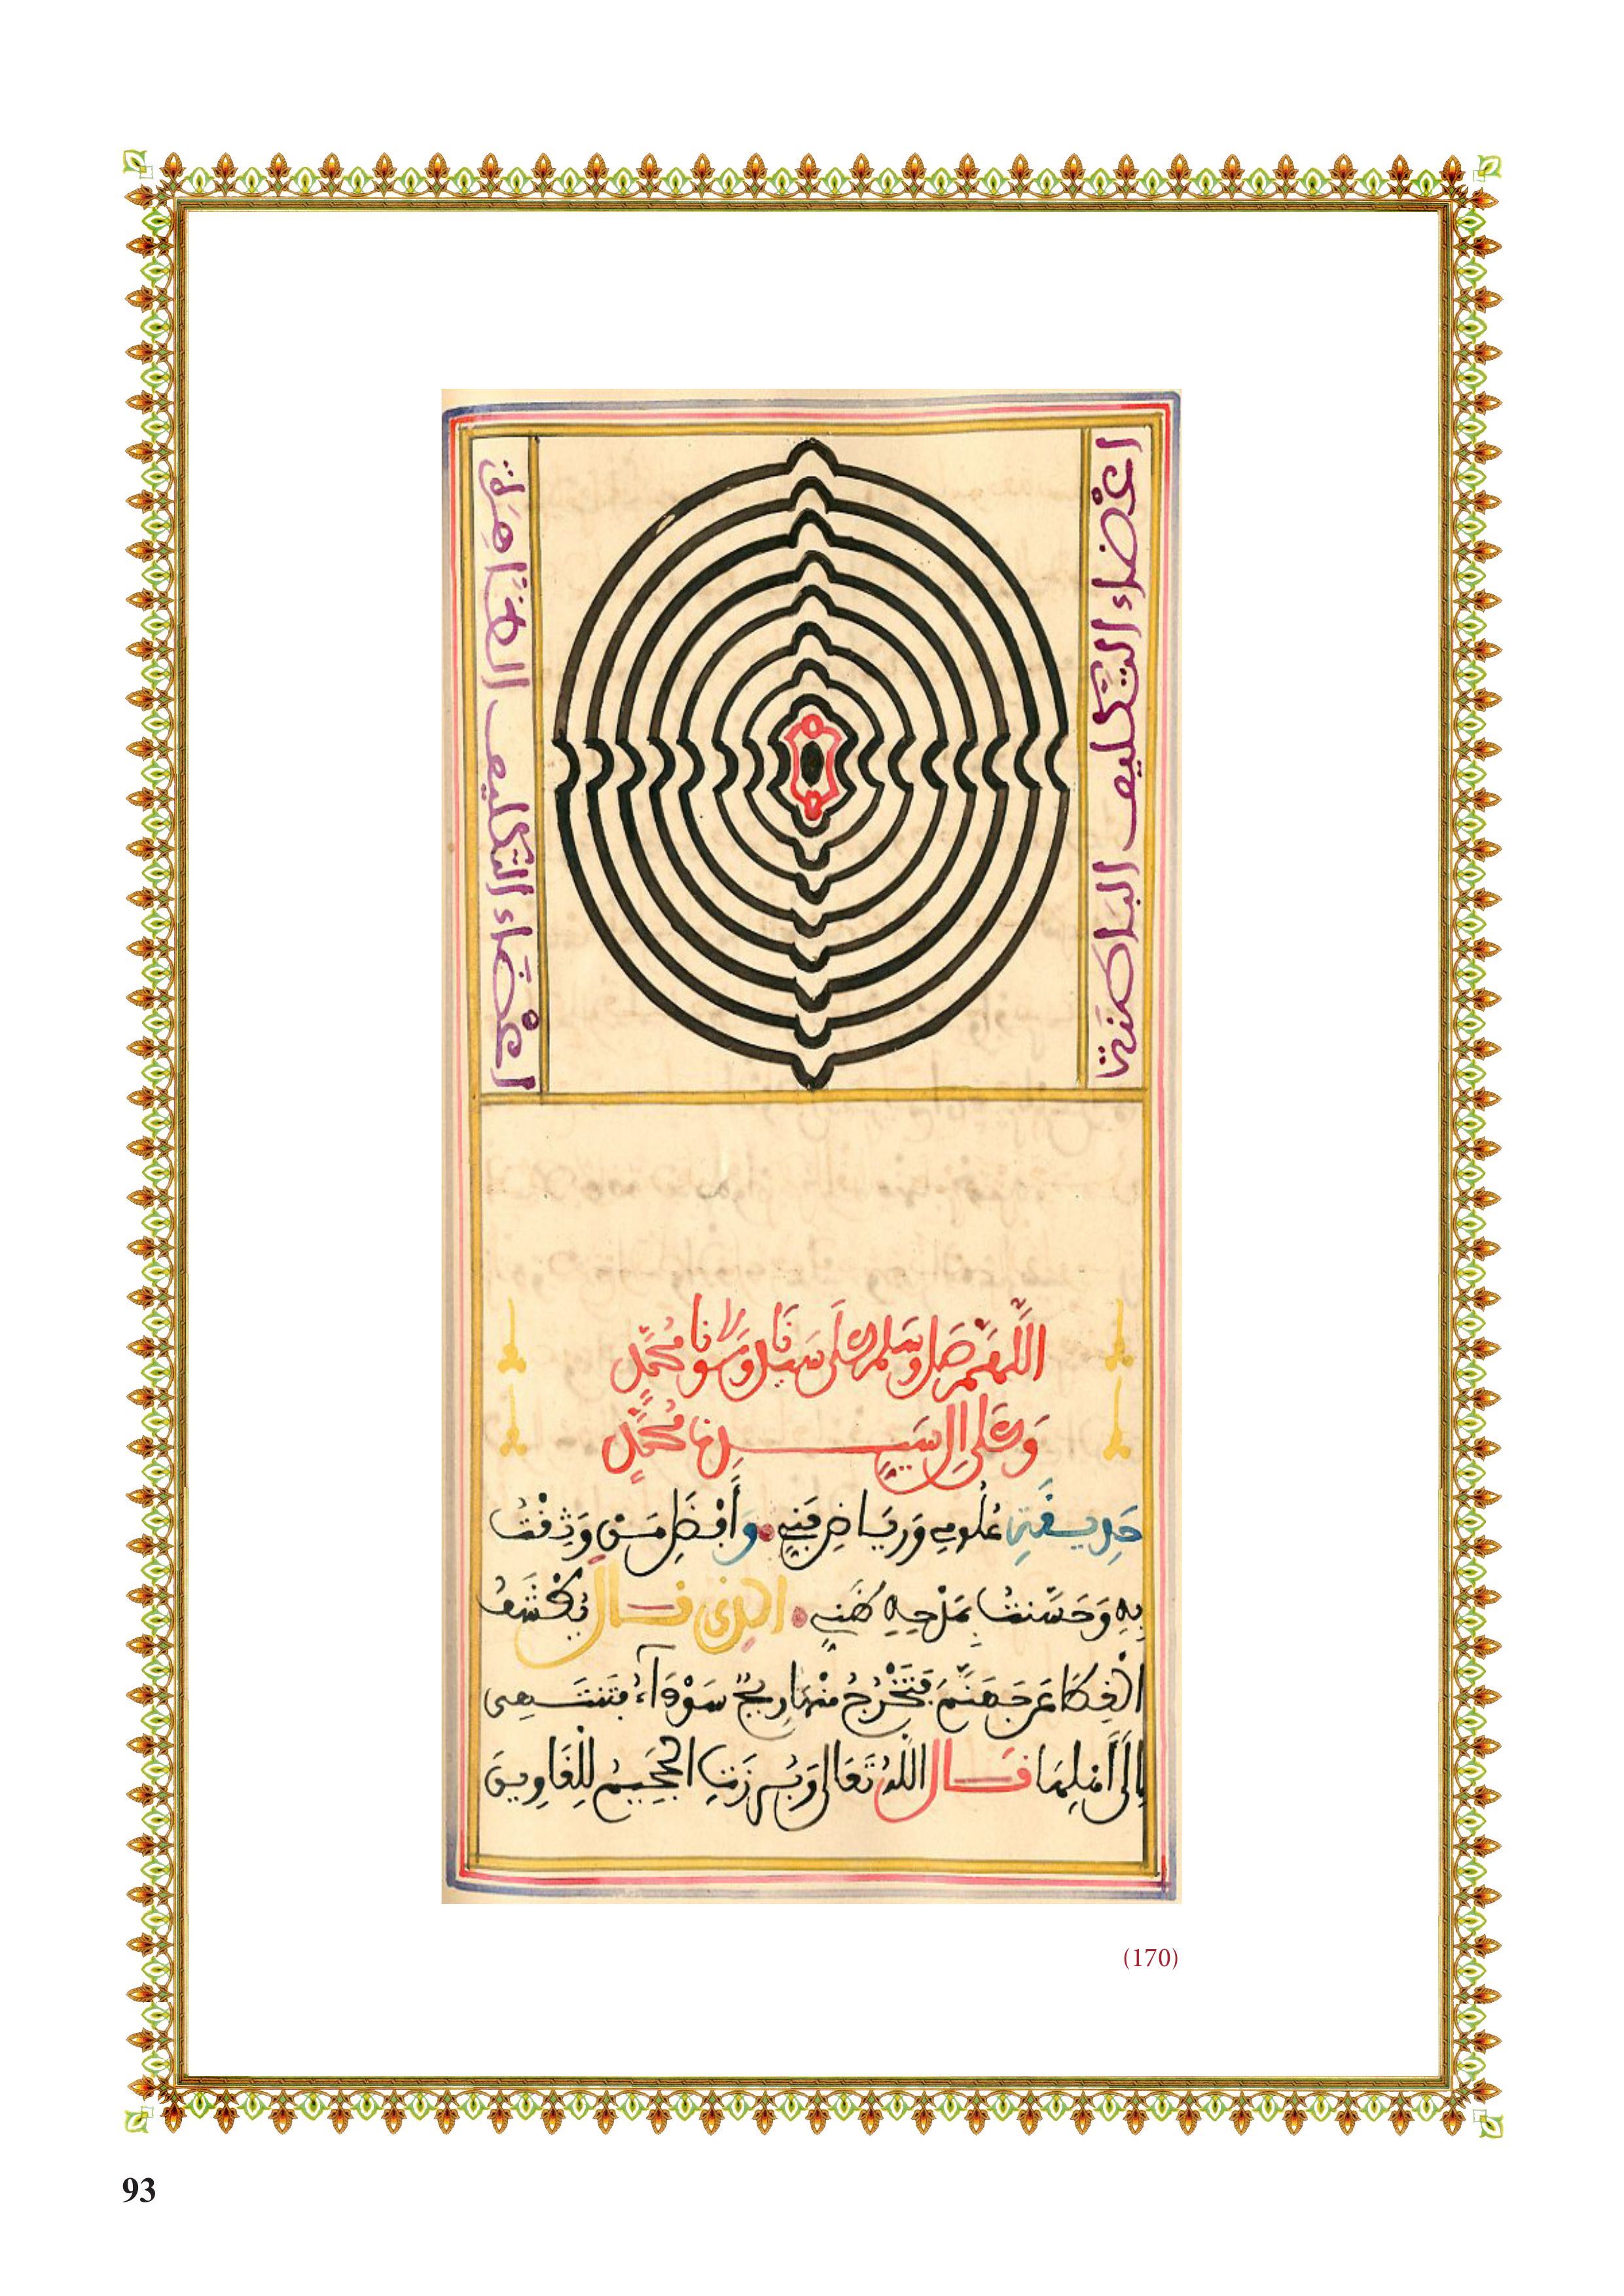 أعضاء التكليف الباطنة
أعضاء التكليف الظاهرة
اللَّهُمَّ صَلِّ وَسَلِّمْ عَلَى سَيِّدِنَا وَمَوْلَانَا مُحَمَّدٍ
وَعَلَى آلِ سَيِّدِنَا مُحَمَّدٍ
حَدِيقَةِ عُلُومِي وَرِيَاضِ فَنِّي وَأَفْضَلِ مَنْ وَثِقْتُ
بِهِ وَحَسَّنْتُ بِمَدْحِهِ ظَنِّي الذي قال يُكْشَفُ
الْغِطَا عَنْ جَهَنَّمَ فَتَخْرُجُ مِنْهَا رِيحٌ سَوْدَآءُ فَتَنْتَهِي
إِلَى أَهْلِهَا قَالَ اللَّهُ تَعَالَى وَبُرِّزَتِ الْجَحِيمُ لِلْغَاوِينَ
(170)
93